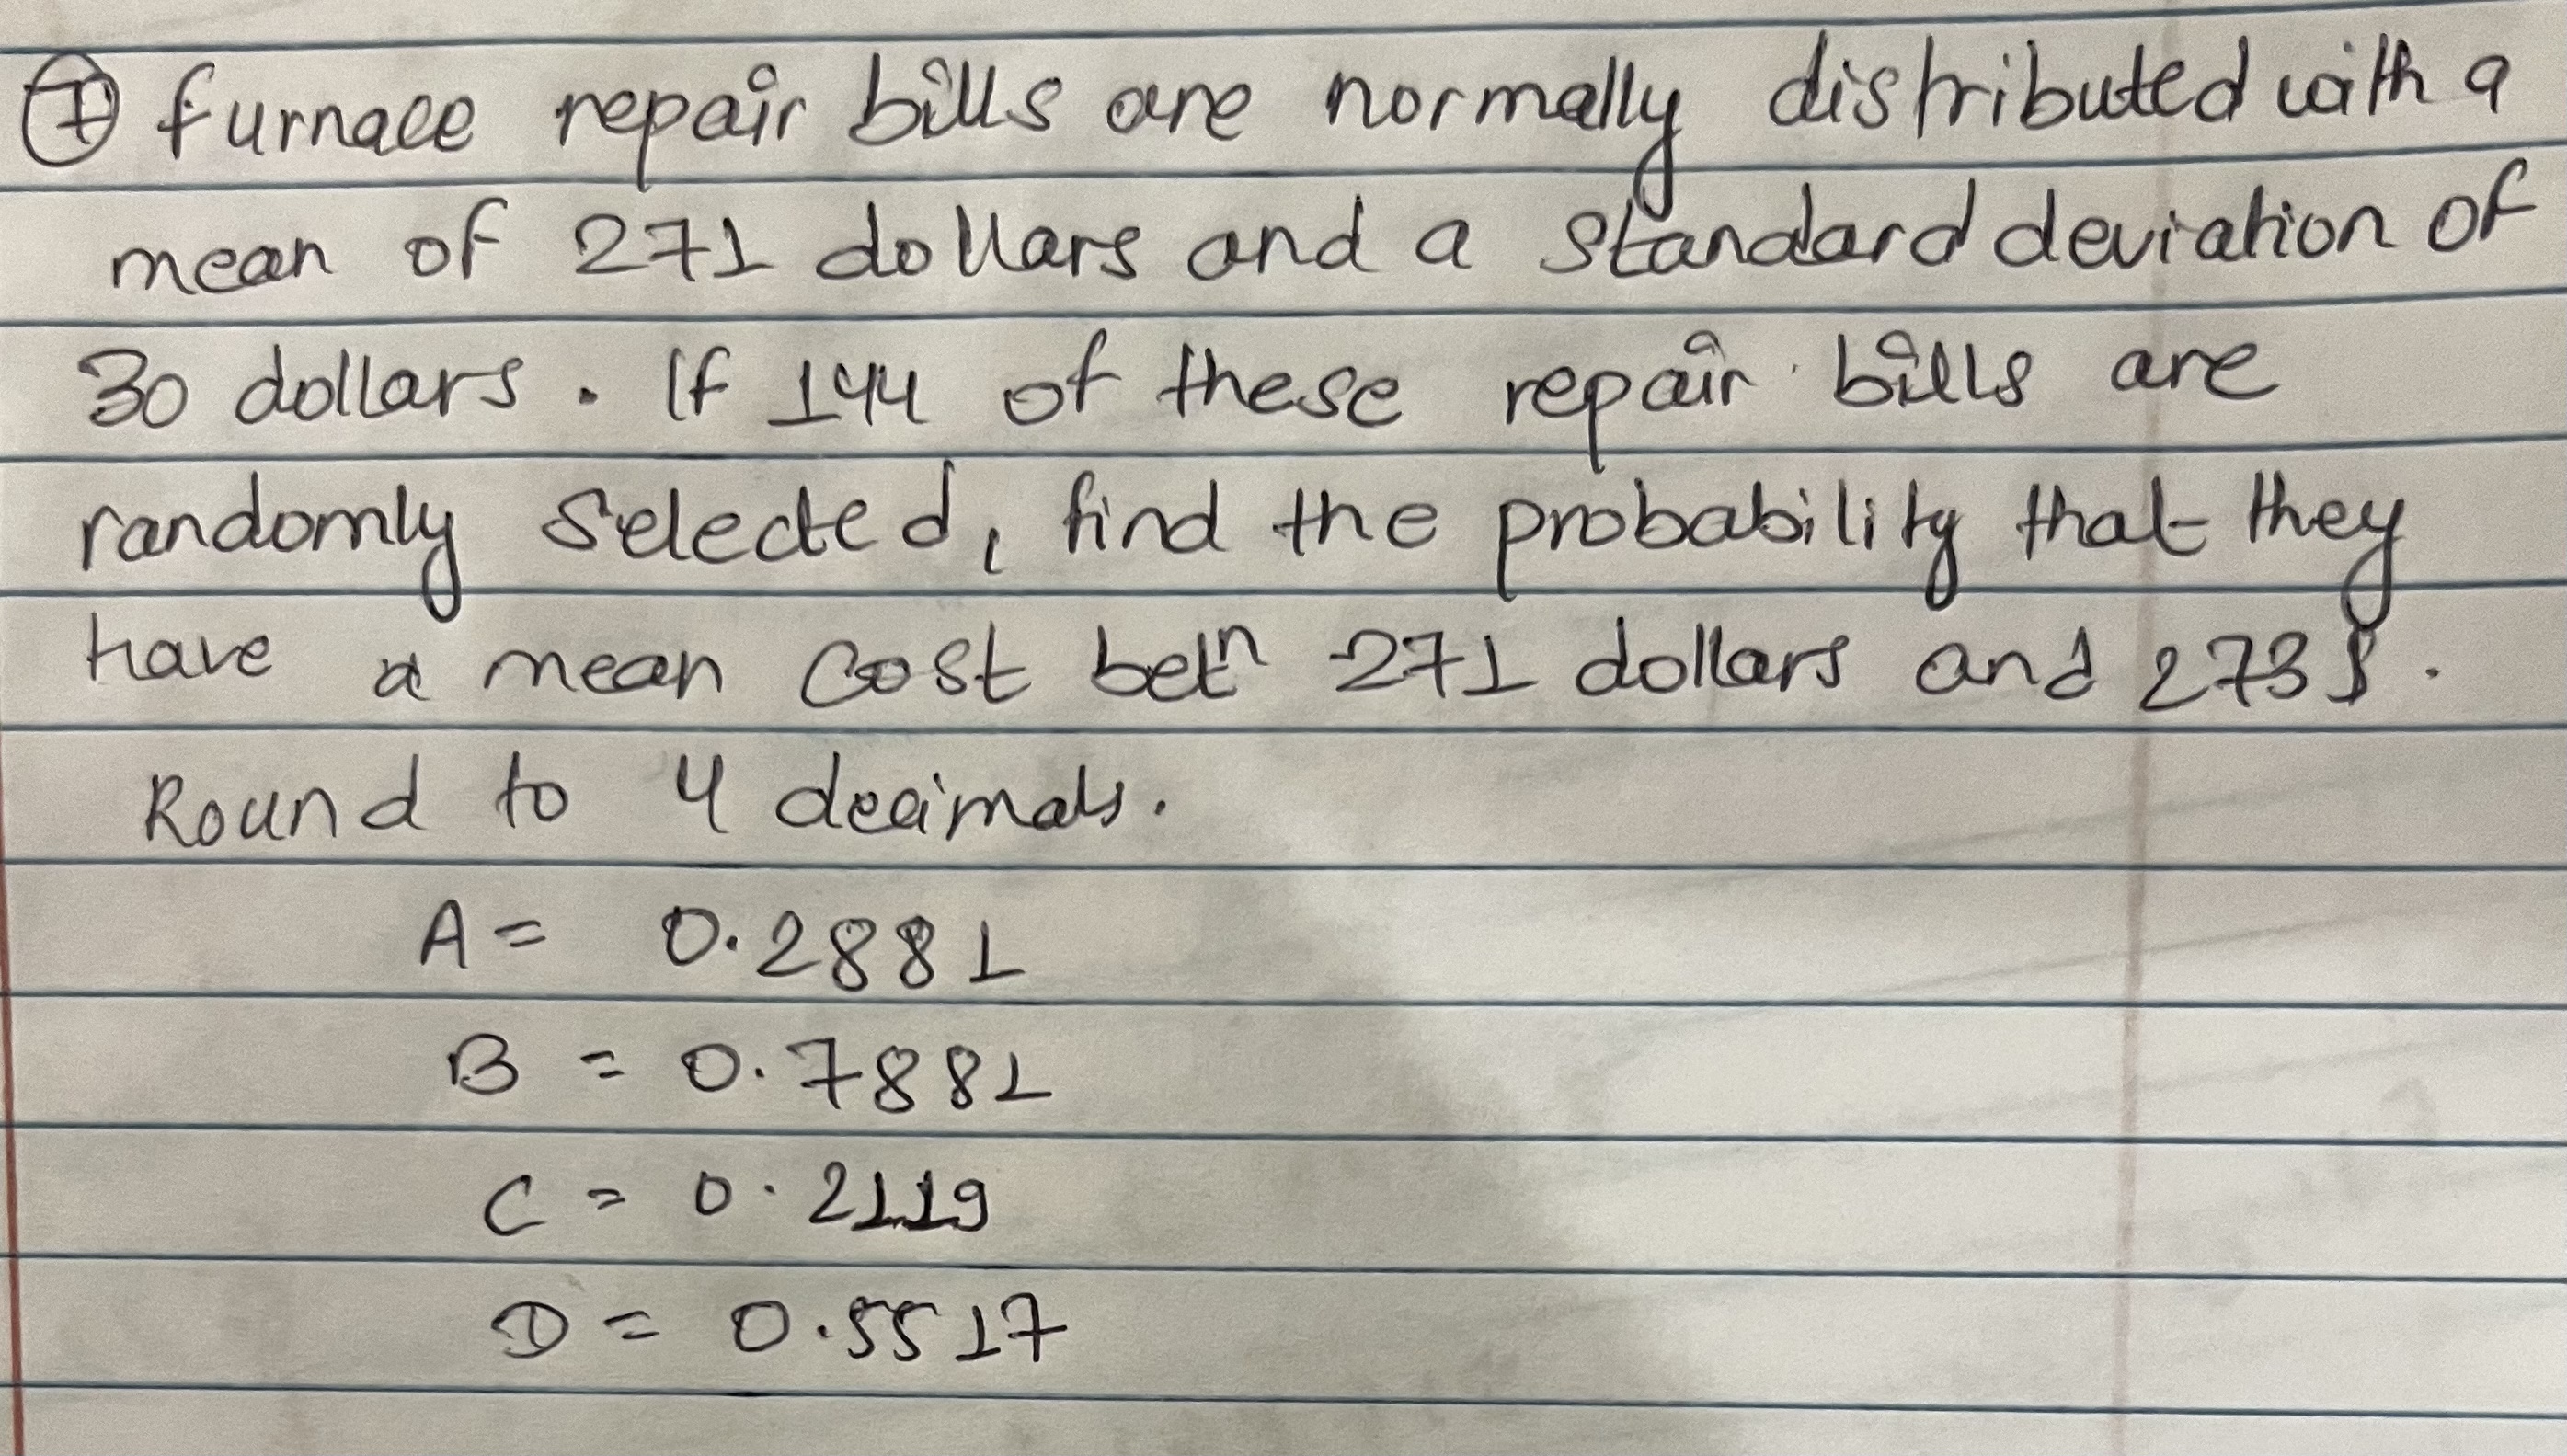 ⑦ furnace repair bills are normally distributed with a
mean of 271 dollars and a standard deviation of
30 dollars. If 144 of these repair bills are
randomly selected, find the probability that they
have a mean cost betⁿ 271 dollars and 273$.
Round to 4 decimals.
A = 0.2881
B = 0.7881
C = 0.2119
D = 0.5517